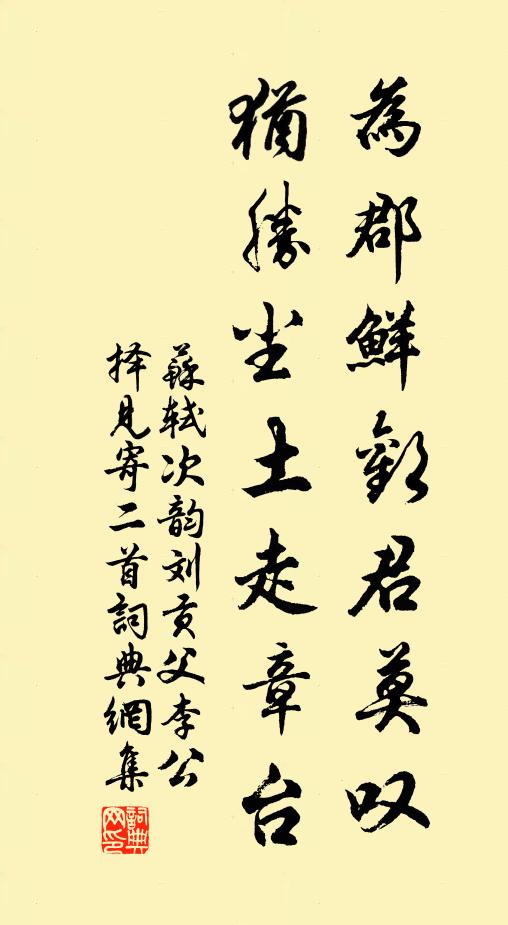 為郡鮮歡君莫叹
猶勝尘土走章台
蘇轼次韵刘贡父李公
择見寄二首詞典網集
詞典网印